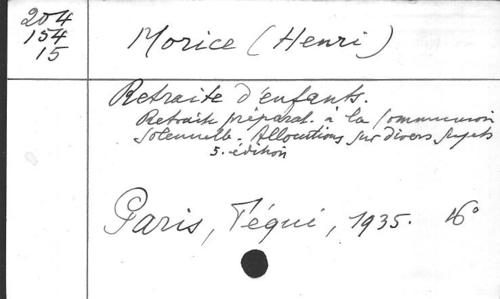 204
154
15
Morice (Henri)
Retraite d'enfants.
Retraite préparat. à la Communion
Solennelle. Allocutions sur divers sujets
5. édition
Paris, Téqui, 1935. 16°